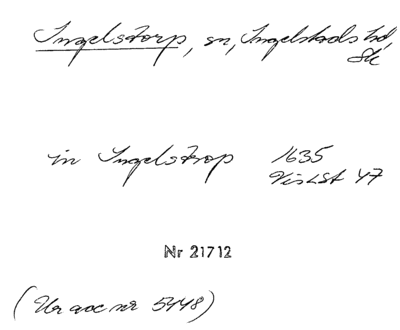 Ingelstorp, sn, Ingelstads hd,
Sk
in Ingelstrop 1635
VisLSt 47
Nr 21712
(Ur acc nr 5448)